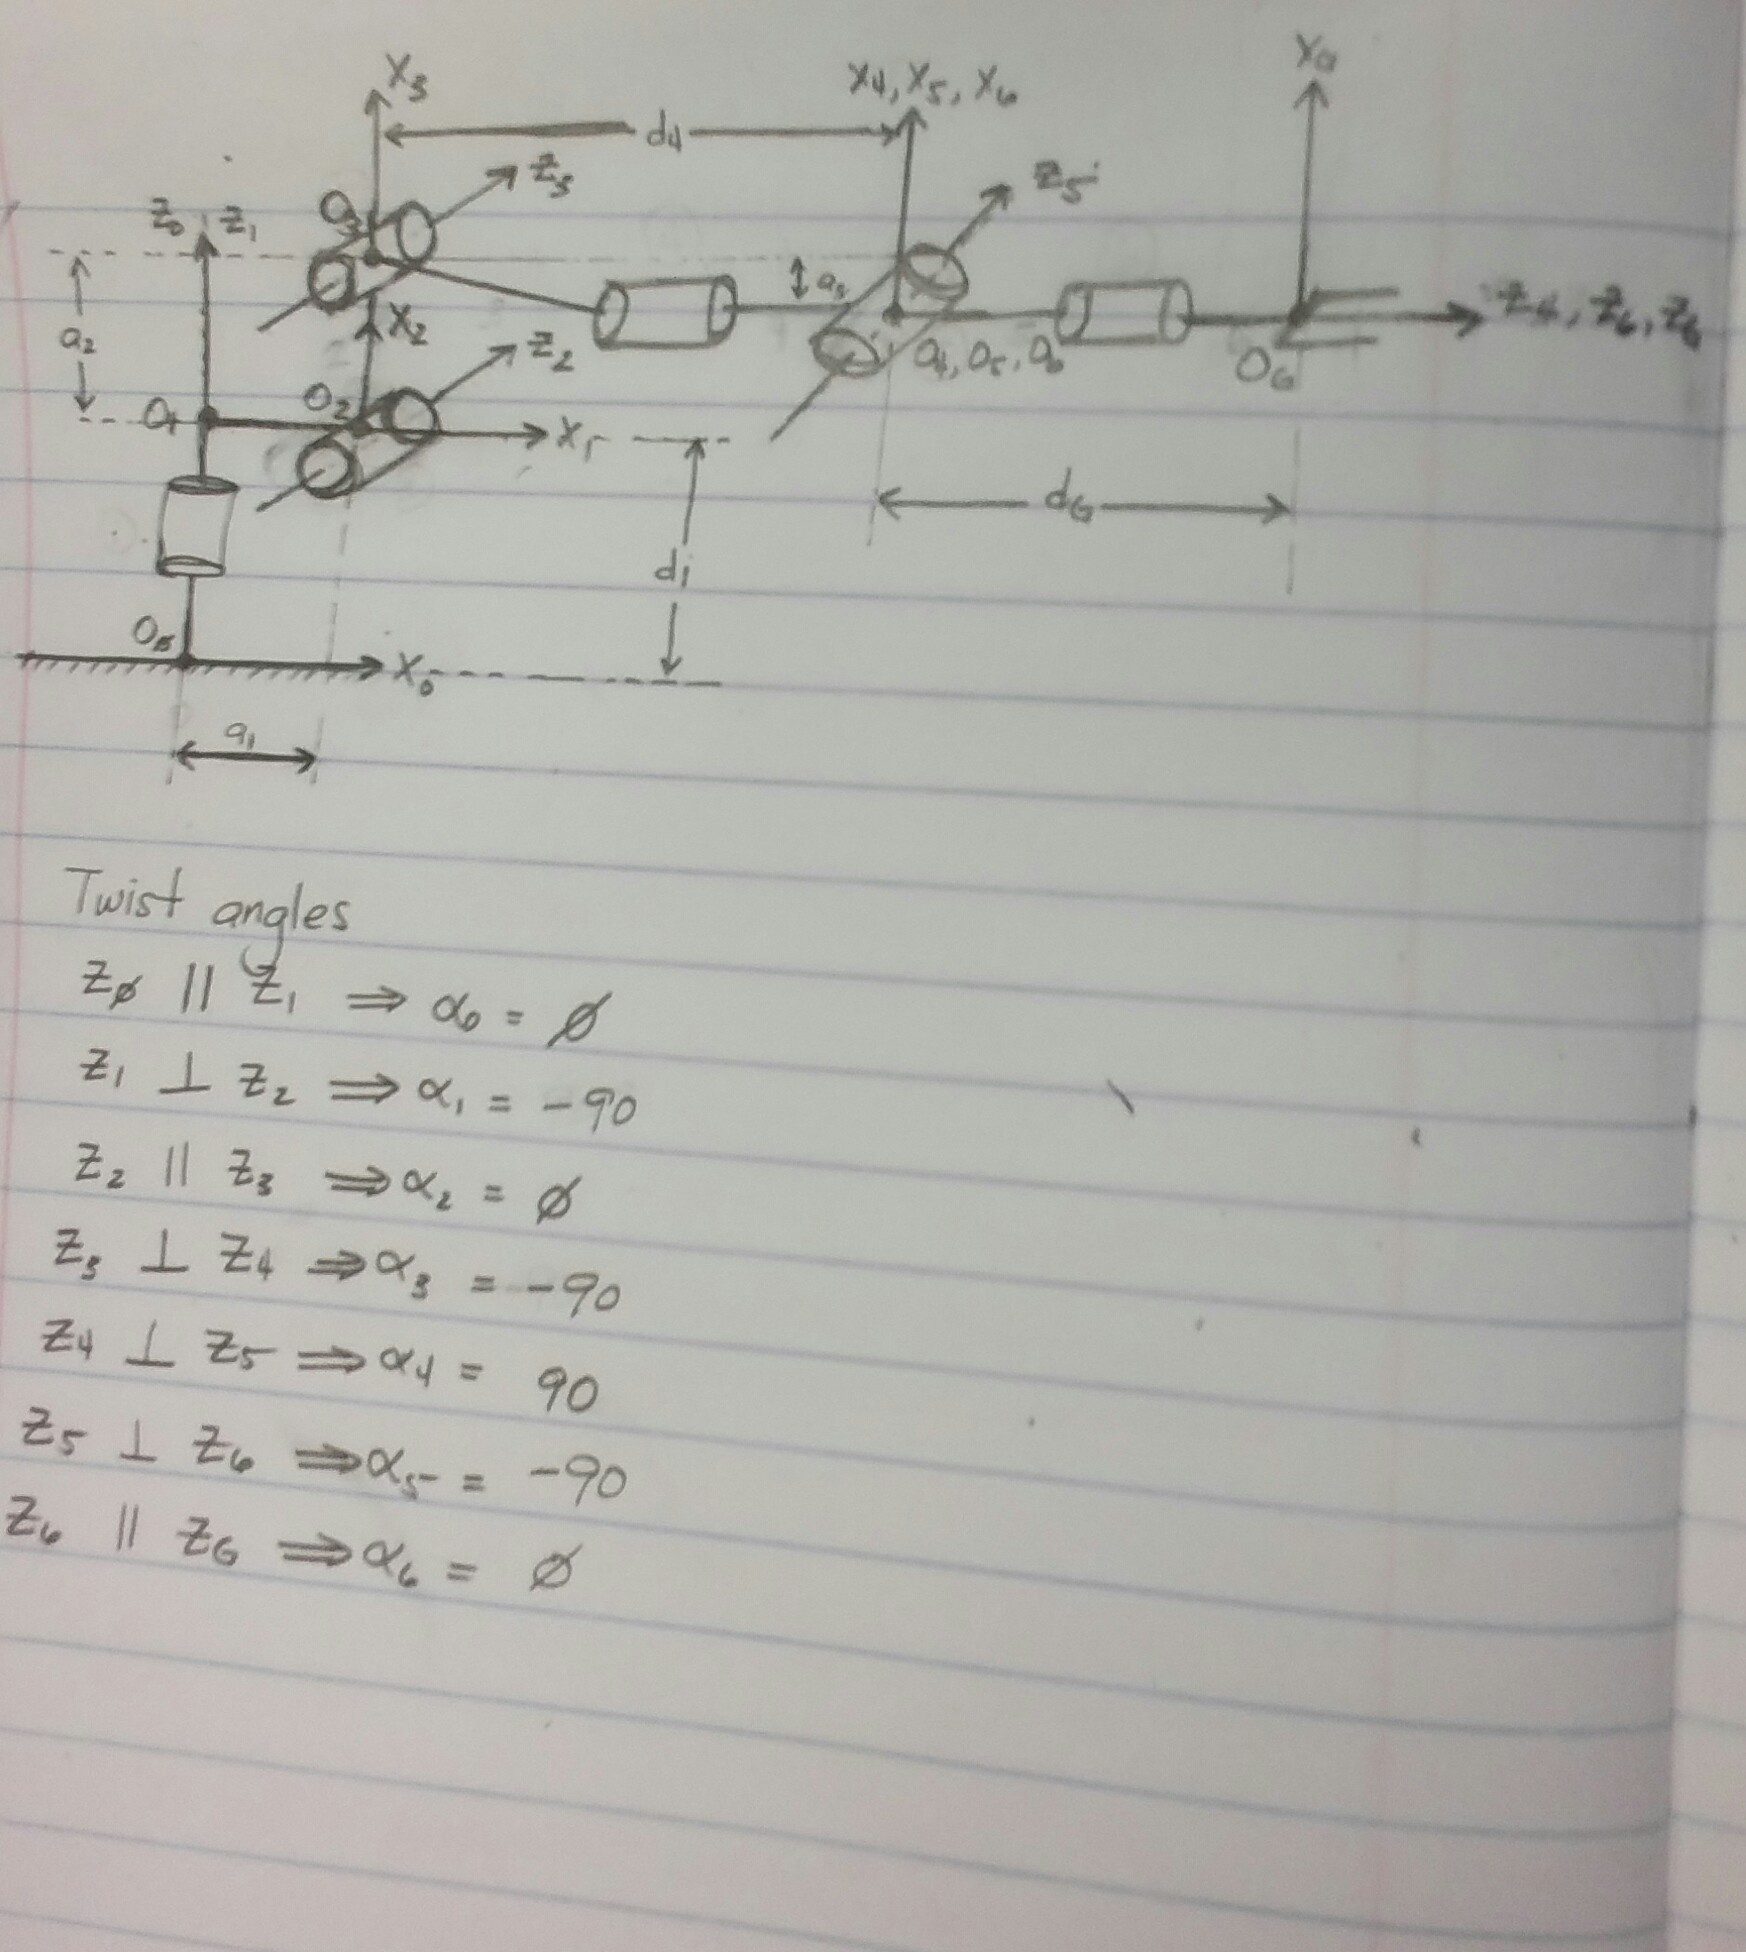 X₃
X₄, X₅, X₆
X_G
d₄
Z₃
Z₅
Z₀ Z₁
O₃
a₃
a₂
X₂
Z₂
Z₄, Z₆, Z_G
O₁
O₂
X₁
O₄, O₅, O₆
O_G
d_G
d₁
O₀
X₀
a₁
Twist angles
Z∅ || Z₁ ⇒ α₀ = ∅
Z₁ ⊥ Z₂ ⇒ α₁ = -90
Z₂ || Z₃ ⇒ α₂ = ∅
Z₃ ⊥ Z₄ ⇒ α₃ = -90
Z₄ ⊥ Z₅ ⇒ α₄ = 90
Z₅ ⊥ Z₆ ⇒ α₅ = -90
Z₆ || Z_G ⇒ α₆ = ∅